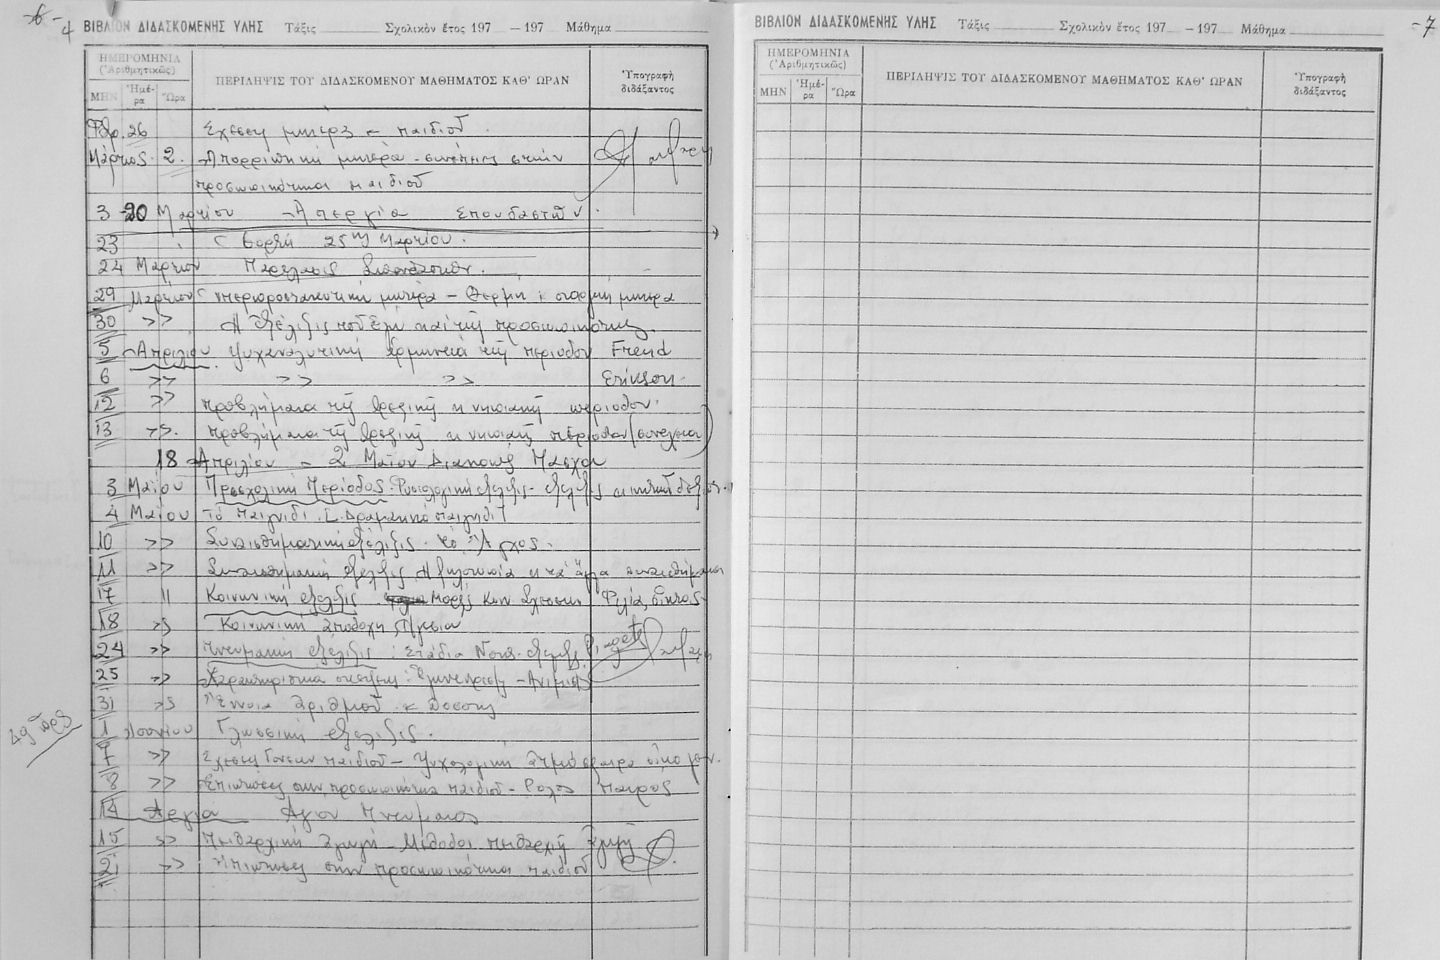 -6-
4 ΒΙΒΛΙΟΝ ΔΙΔΑΣΚΟΜΕΝΗΣ ΥΛΗΣ Τάξις Σχολικὸν ἔτος 197 —197 Μάθημα
ΗΜΕΡΟΜΗΝΙΑ
(Ἀριθμητικῶς)
ΜΗΝ Ἡμέρα Ὥρα
ΠΕΡΙΛΗΨΙΣ ΤΟΥ ΔΙΔΑΣΚΟΜΕΝΟΥ ΜΑΘΗΜΑΤΟΣ ΚΑΘ' ΩΡΑΝ
Ὑπογραφὴ
διδάξαντος
Φβρ. 26 Σχέσεις μητέρας - παιδιοῦ
Μάρτιος 2. Ἀπορριπτική μητέρα - συνέπειες στὴν
προσωπικότητα παιδιοῦ
3 - 20 Μαρτίου - Ἀπεργία Σπουδαστῶν.
23 Ἑορτή 25ης Μαρτίου.
24 Μαρτίου Παρέλασις
29 Μαρτίου Ὑπερπροστατευτική μητέρα - Θερμή στοργική μητέρα
30 >> Ἡ ἐξέλιξις τοῦ Ἐγώ καί τῆς προσωπικότητας
5 Ἀπριλίου Ψυχαναλυτική ἑρμηνεία τῆς περιόδου Freud
6 >> >> >> Erikson.
12 >> Προβλήματα τῆς βρεφικῆς κ νηπιακῆς περιόδου.
13 >> Προβλήματα τῆς βρεφικῆς κ νηπιακῆς περιόδου (συνέχεια)
18 Ἀπριλίου - 2 Μαΐου Διακοπές Πάσχα
3 Μαΐου Προσχολική Περίοδος. Φυσιολογική ἐξέλιξις - ἐξέλιξις κινητικῶν
4 Μαΐου Τό παιγνίδι. Δραματικό παιγνίδι
10 >> Συναισθηματική ἐξέλιξις. Τό Ἄγχος.
11 >> Συναισθηματική ἐξέλιξις Ἡ ζηλοτυπία κ τά ἄλλα συναισθήματα
17 11 Κοινωνική ἐξέλιξις. Μορφές Κοιν Σχέσεων Φιλία,
18 >> Κοινωνική ἀποδοχή, Ἡγεσία
24 >> Πνευματική ἐξέλιξις: Στάδια Νοητ. ἐξελίξ. Piaget
25 >> Χαρακτηριστικά σκέψης: Ἐγωκεντρισμός - Ἀνιμισμός
31 >> Ἔννοια ἀριθμοῦ κ ποσοῦ
49 ὧρες
1 Ἰουνίου Γλωσσική ἐξέλιξις.
7 >> Σχέσεις Γονέων παιδιοῦ - Ψυχολογική ἀτμόσφαιρα οἰκογεν.
8 >> Ἐπιπτώσεις στήν προσωπικότητα παιδιοῦ - Ρόλος πατρός
14 Ἀργία Ἁγίου Πνεύματος
15 >> Πειθαρχική Ἀγωγή - Μέθοδοι πειθαρχικῆς ἀγωγῆς
21 >> Ἐπιπτώσεις στήν προσωπικότητα παιδιοῦ
ΒΙΒΛΙΟΝ ΔΙΔΑΣΚΟΜΕΝΗΣ ΥΛΗΣ Τάξις Σχολικὸν ἔτος 197 —197 Μάθημα -7
ΗΜΕΡΟΜΗΝΙΑ
(Ἀριθμητικῶς)
ΜΗΝ Ἡμέρα Ὥρα
ΠΕΡΙΛΗΨΙΣ ΤΟΥ ΔΙΔΑΣΚΟΜΕΝΟΥ ΜΑΘΗΜΑΤΟΣ ΚΑΘ' ΩΡΑΝ
Ὑπογραφὴ
διδάξαντος